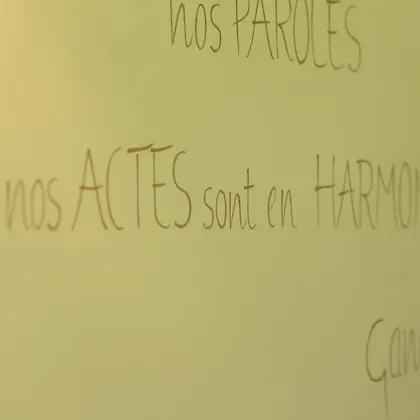 nos PAROLES
nos ACTES sont en HARMON
Gan